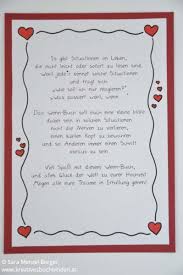 Es gibt Situationen im Leben,
die nicht leicht oder sofort zu lösen sind,
Weil jede/r kennt solche Situationen
und fragt sich
"wie soll ich nur reagieren?",
"was passiert wohl, wenn
Das Wenn-Buch soll euch eine kleine Hilfe
dabei sein in solchen Situationen
nicht die Nerven zu verlieren,
einen kühlen Kopf zu bewahren
und so Anderen immer einen Schritt
voraus zu sein.
Viel Spaß mit diesem Wenn-Buch,
und alles Glück der Welt zu eurer Hochzeit!
Mögen alle eure Träume in Erfüllung gehen!
© Sara Menzel-Berger
www.kreativesbuechlein.at